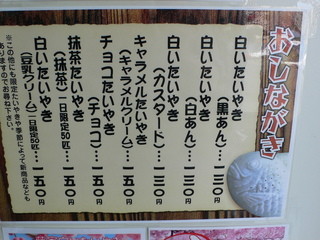 おしながき
白いたいやき
（黒あん）…一三〇円
白いたいやき
（白あん）…一三〇円
白いたいやき
（カスタード）…一三〇円
キャラメルたいやき
（キャラメルクリーム）…一五〇円
チョコたいやき
（チョコ）…一五〇円
抹茶たいやき
（抹茶）一日限定50匹…一五〇円
白いたいやき
（豆乳クリーム）一日限定50匹…一五〇円
※この他にも限定たいやきや季節によって新商品なども
ありますのでお尋ね下さい。